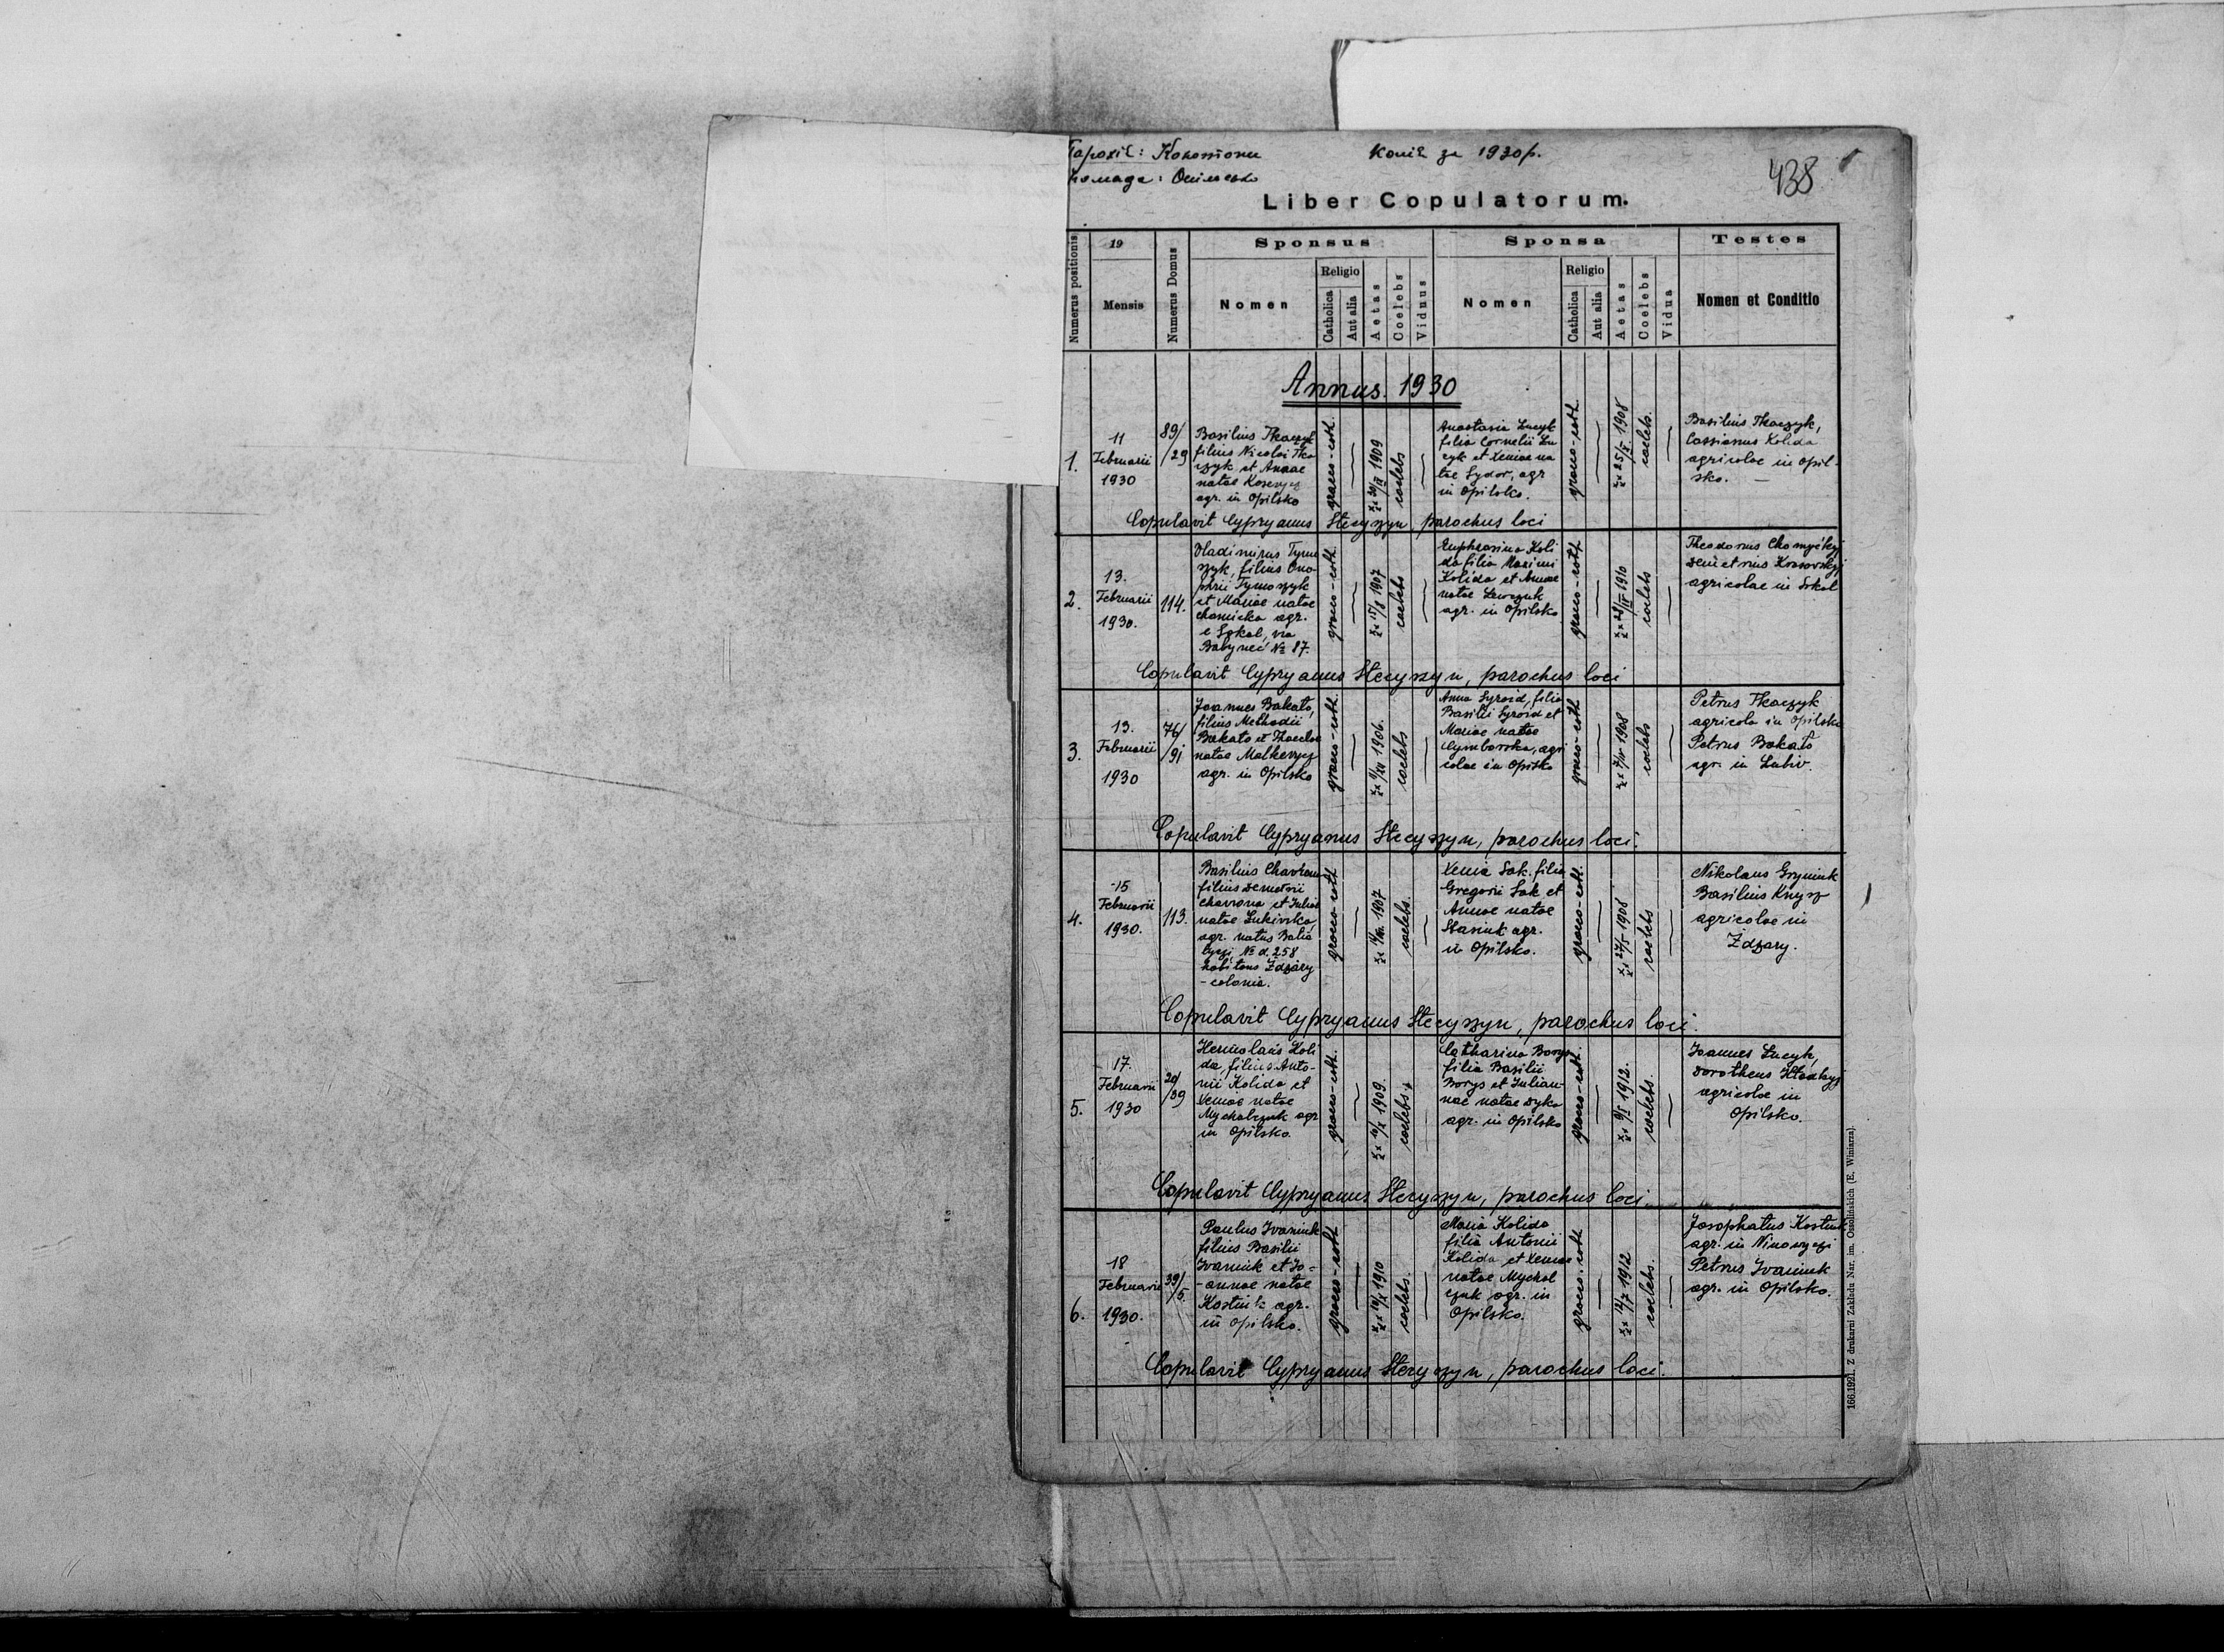 Парохія: Конотопи Копія за 1930 р.
громада: Опільсько
438
Liber Copulatorum.
Numerus positionis
19
Mensis
Numerus Domus
Sponsus
Nomen
Religio
Catholica
Aut alia
Aetas
Coelebs
Viduus
Sponsa
Nomen
Religio
Catholica
Aut alia
Aetas
Coelebs
Vidua
Testes
Nomen et Conditio
Annus. 1930
1.
11
Februarii
1930
89/
/29
Basilius Tkaczyk
filius Nicolai Tka
czyk et Annae
natae
agr. in Opilsko
graeco-cath.
1909
coelebs
Anastasia Lucyk
filia Cornelii Lu
cyk et Xeniae na
tae Sydor, agr
in Opilsko.
graeco-cath.
25/X 1908
coelebs.
Basilius Tkaczyk,
Cassianus Kolida
agricolae in Opil-
sko. —
Copulavit Cypryanus Stecyszyn, parochus loci
2.
13.
Februarii
1930.
114.
Vladimirus Tymo
szyk, filius Ono
phrii Tymoszyk
et Mariae natae
Chomicka agr.
e Sokal, via
Babyneć № 87.
graeco-cath.
1907
coelebs
Euphrosina Koli
da filia Maximi
Kolida et Annae
natae Lewczuk
agr. in Opilsko
graeco-cath.
1910
coelebs
Theodorus
Demetrius
agricolae in Sokal
Copulavit Cypryanus Stecyszyn, parochus loci
3.
13.
Februarii
1930
76/
/91
Joannes Bakato,
filius Methodii
Bakato et Theclae
natae
agr. in Opilsko
graeco-cath.
1906.
coelebs
Anna Syroid, filia
Basilii Syroid et
Mariae natae
Cymborska, agri
colae in Opilsko
graeco-cath
1908
coelebs
Petrus Tkaczyk
agricola in Opilsko
Petrus Bakato
agr. in Lubiv.
Copulavit Cypryanus Stecyszyn, parochus loci.
4.
15
Februarii
1930.
113.
Basilius
filius Demetrii
et Juliae
natae Lukivska,
agr. natus Balia
tyczi, № d. 258
habitans Żdżary
-colonia.
graeco-cath
1907
coelebs.
Xenia Sak. filia
Gregorii Sak et
Annae natae
Stasiuk agr.
in Opilsko.
graeco-cath.
1908
coelebs
Nikolaus Gryniuk
Basilius Knysz
agricolae in
Żdżary.
Copulavit Cypryanus Stecyszyn, parochus loci.
5.
17.
Februarii
1930
20/
/39
Hermolaus Koli
da, filius Anto-
nii Kolida et
Xeniae natae
Mychalczuk agr
in Opilsko.
graeco-cath.
1909.
coelebs.
Catharina Borys
filia Basilii
Borys et Julian-
nae natae Dyka
agr. in Opilsko
graeco-cath.
1912.
coelebs.
Joannes Lucyk,
Dorotheus
agricolae in
Opilsko.
Copulavit Cypryanus Stecyszyn, parochus loci.
6.
18
Februarii
1930.
39/
/5.
Paulus Ivaniuk
filius Basilii
Ivaniuk et Jo-
-annae natae
Kostiuk agr.
in Opilsko.
graeco-cath
1910
coelebs.
Maria Kolida
filia Antonii
Kolida et Xeniae
natae Mychal
czuk agr. in
Opilsko.
graeco-cath
1912
coelebs.
Josophatus Kostiuk
agr. in
Petrus Ivaniuk
agr. in Opilsko.
Copulavit Cypryanus Stecyszyn, parochus loci.
166.1921. Z drukarni Zakładu Nar. im. Ossolińskich (E. Winiarza).